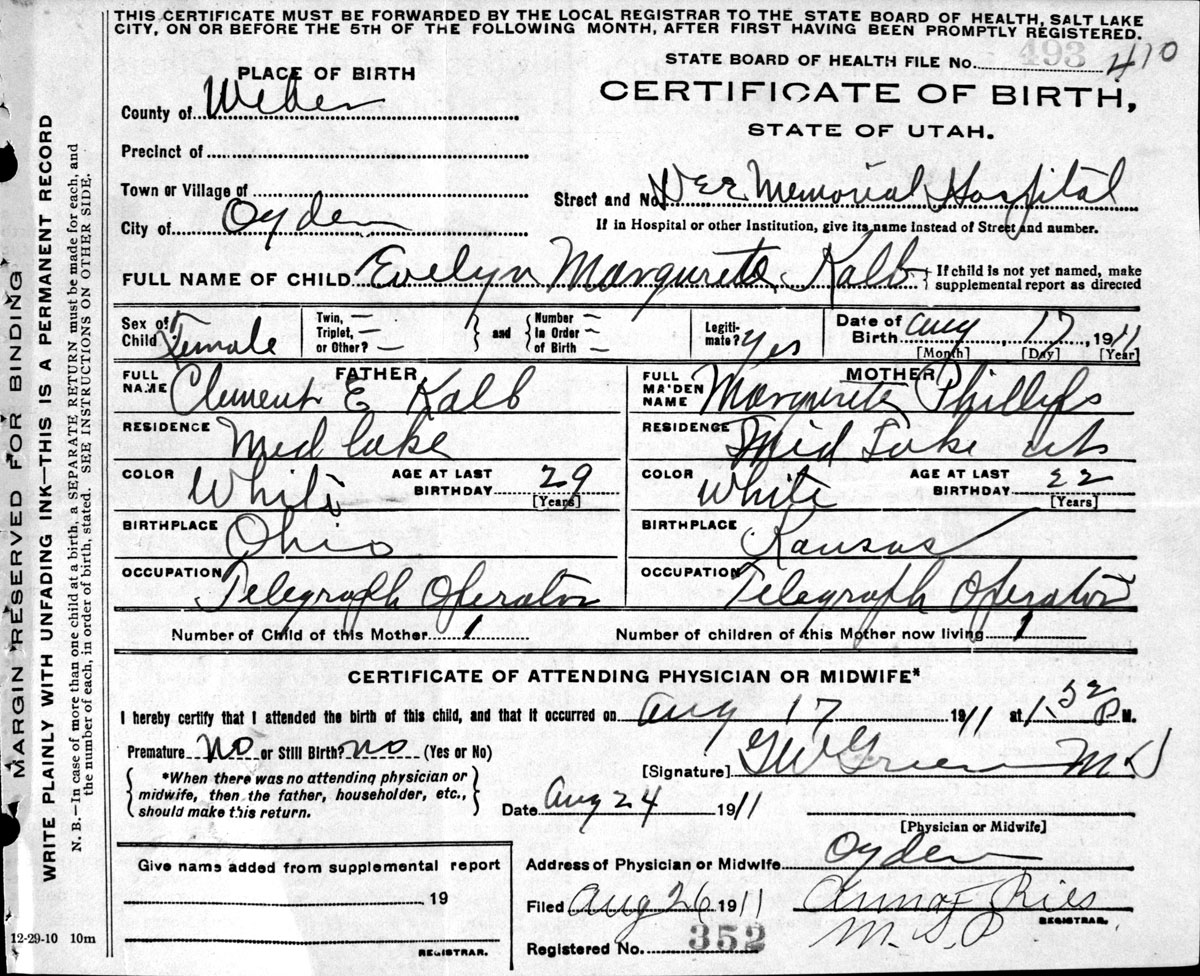 THIS CERTIFICATE MUST BE FORWARDED BY THE LOCAL REGISTRAR TO THE STATE BOARD OF HEALTH, SALT LAKE
CITY, ON OR BEFORE THE 5TH OF THE FOLLOWING MONTH, AFTER FIRST HAVING BEEN PROMPTLY REGISTERED.
STATE BOARD OF HEALTH FILE No. 493 410
PLACE OF BIRTH
CERTIFICATE OF BIRTH,
STATE OF UTAH.
County of Weber
Precinct of
Town or Village of
City of Ogden
Street and No. Dee Memorial Hospital
If in Hospital or other Institution, give its name instead of Street and number.
FULL NAME OF CHILD Evelyn Margurete Kalb
If child is not yet named, make
supplemental report as directed
Sex of Child Female
Twin, —
Triplet, —
or Other? —
and
Number —
in Order —
of Birth —
Legiti-
mate? Yes
Date of
Birth Aug 17, 1911
[Month] [Day] [Year]
FATHER
FULL NAME Clement E Kalb
RESIDENCE Mid lake
COLOR White
AGE AT LAST BIRTHDAY 29
[Years]
BIRTHPLACE Ohio
OCCUPATION Telegraph Operator
MOTHER
FULL MAIDEN NAME Margurete Phillips
RESIDENCE Mid Lake
COLOR White
AGE AT LAST BIRTHDAY 22
[Years]
BIRTHPLACE Kansas
OCCUPATION Telegraph Operator
Number of Child of this Mother 1
Number of children of this Mother now living 1
CERTIFICATE OF ATTENDING PHYSICIAN OR MIDWIFE*
I hereby certify that I attended the birth of this child, and that it occurred on Aug 17 1911 at 1.32 P M.
Premature No or Still Birth? no (Yes or No)
*When there was no attending physician or
midwife, then the father, householder, etc.,
should make this return.
[Signature] GW Green MD
Date Aug 24 1911
[Physician or Midwife]
Give name added from supplemental report
19
REGISTRAR.
Address of Physician or Midwife Ogden
Filed Aug 26 1911
Anna F Ries
REGISTRAR.
Registered No. 352
12-29-10 10m
MARGIN RESERVED FOR BINDING
WRITE PLAINLY WITH UNFADING INK—THIS IS A PERMANENT RECORD
N. B.—In case of more than one child at a birth, a SEPARATE RETURN must be made for each, and
the number of each, in order of birth, stated. SEE INSTRUCTIONS ON OTHER SIDE.